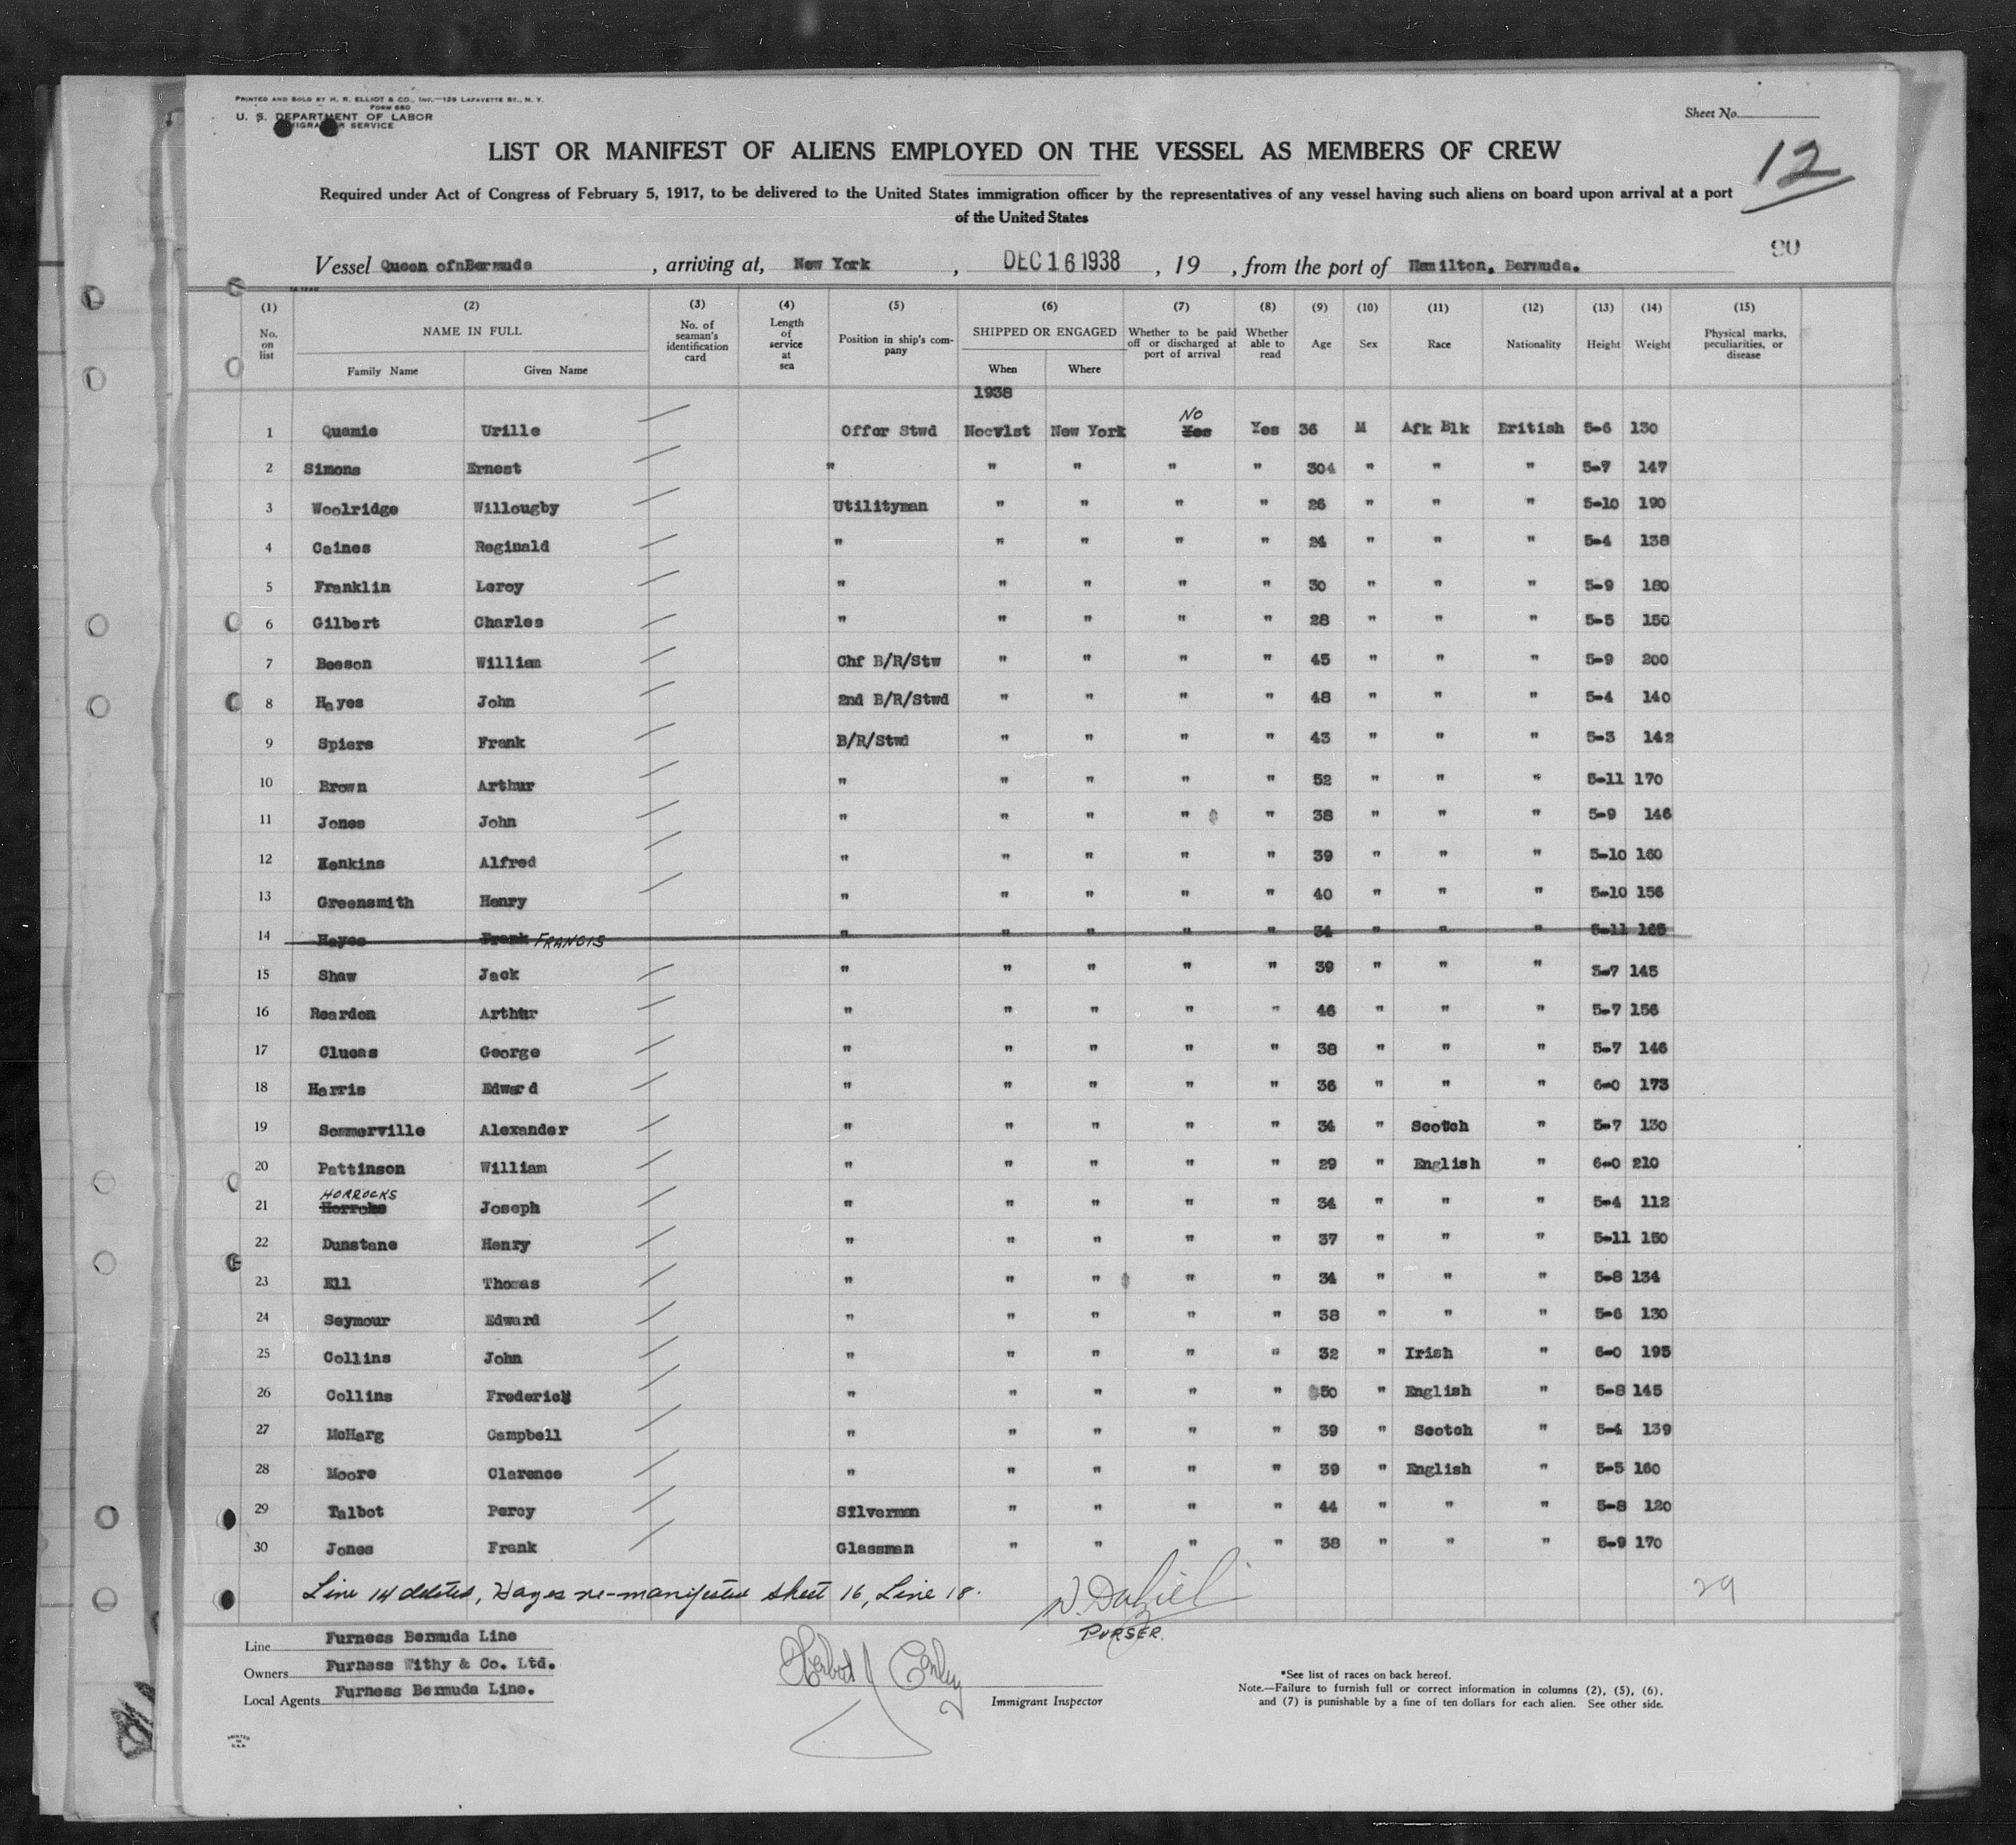 PRINTED AND SOLD BY H. R. ELLIOT & CO., INC.—129 LAFAYETTE ST., N. Y.
FORM 680
U. S. DEPARTMENT OF LABOR
SERVICE
Sheet No.
LIST OR MANIFEST OF ALIENS EMPLOYED ON THE VESSEL AS MEMBERS OF CREW
12
Required under Act of Congress of February 5, 1917, to be delivered to the United States immigration officer by the representatives of any vessel having such aliens on board upon arrival at a port
of the United States
90
Vessel Queen ofnBermuda , arriving at, New York , DEC 16 1938 , 19 , from the port of Hamilton, Bermuda.
(1) (2) (3) (4) (5) (6) (7) (8) (9) (10) (11) (12) (13) (14) (15)
No. on list NAME IN FULL Family Name Given Name No. of seaman's identification card Length of service at sea Position in ship's company SHIPPED OR ENGAGED When Where Whether to be paid off or discharged at port of arrival Whether able to read Age Sex Race Nationality Height Weight Physical marks, peculiarities, or disease
1938
NO
1 Quamie Urille Offcr Stwd Nocvlst New York Yes Yes 36 M Afk Blk British 5-6 130
2 Simons Ernest " " " " " 304 " " " 5-7 147
3 Woolridge Willougby Utilityman " " " " 26 " " " 5-10 190
4 Caines Reginald " " " " " 24 " " " 5-4 138
5 Franklin Leroy " " " " " 30 " " " 5-9 180
6 Gilbert Charles " " " " " 28 " " " 5-5 150
7 Beeson William Chf B/R/Stw " " " " 45 " " " 5-9 200
8 Hayes John 2nd B/R/Stwd " " " " 48 " " " 5-4 140
9 Spiers Frank B/R/Stwd " " " " 43 " " " 5-3 142
10 Brown Arthur " " " " " 52 " " " 5-11 170
11 Jones John " " " " " 38 " " " 5-9 146
12 Henkins Alfred " " " " " 39 " " " 5-10 160
13 Greensmith Henry " " " " " 40 " " " 5-10 156
14 Hayes Frank FRANCIS " " " " " 34 " " " 5-11 165
15 Shaw Jack " " " " " 39 " " " 5-7 145
16 Reardon Arthur " " " " " 46 " " " 5-7 156
17 Clucas George " " " " " 38 " " " 5-7 146
18 Harris Edward " " " " " 36 " " " 6-0 173
19 Sommerville Alexander " " " " " 34 " Scotch " 5-7 130
20 Pattinson William " " " " " 29 " English " 6-0 210
HORROCKS
21 Horroks Joseph " " " " " 34 " " " 5-4 112
22 Dunstane Henry " " " " " 37 " " " 5-11 150
23 Ell Thomas " " " " " 34 " " " 5-8 134
24 Seymour Edward " " " " " 38 " " " 5-6 130
25 Collins John " " " " " 32 " Irish " 6-0 195
26 Collins Frederick " " " " " 50 " English " 5-8 145
27 McHarg Campbell " " " " " 39 " Scotch " 5-4 139
28 Moore Clarence " " " " " 39 " English " 5-5 160
29 Talbot Percy Silverman " " " " 44 " " " 5-8 120
30 Jones Frank Glassman " " " " 38 " " " 5-9 170
Line 14 deleted, Hayes re-manifested sheet 16, Line 18.
N. Dalziel
PURSER.
29
Line Furness Bermuda Line
Owners Furness Withy & Co. Ltd.
Local Agents Furness Bermuda Line.
Immigrant Inspector
*See list of races on back hereof.
Note.—Failure to furnish full or correct information in columns (2), (5), (6),
and (7) is punishable by a fine of ten dollars for each alien. See other side.
PRINTED
IN
U.S.A.